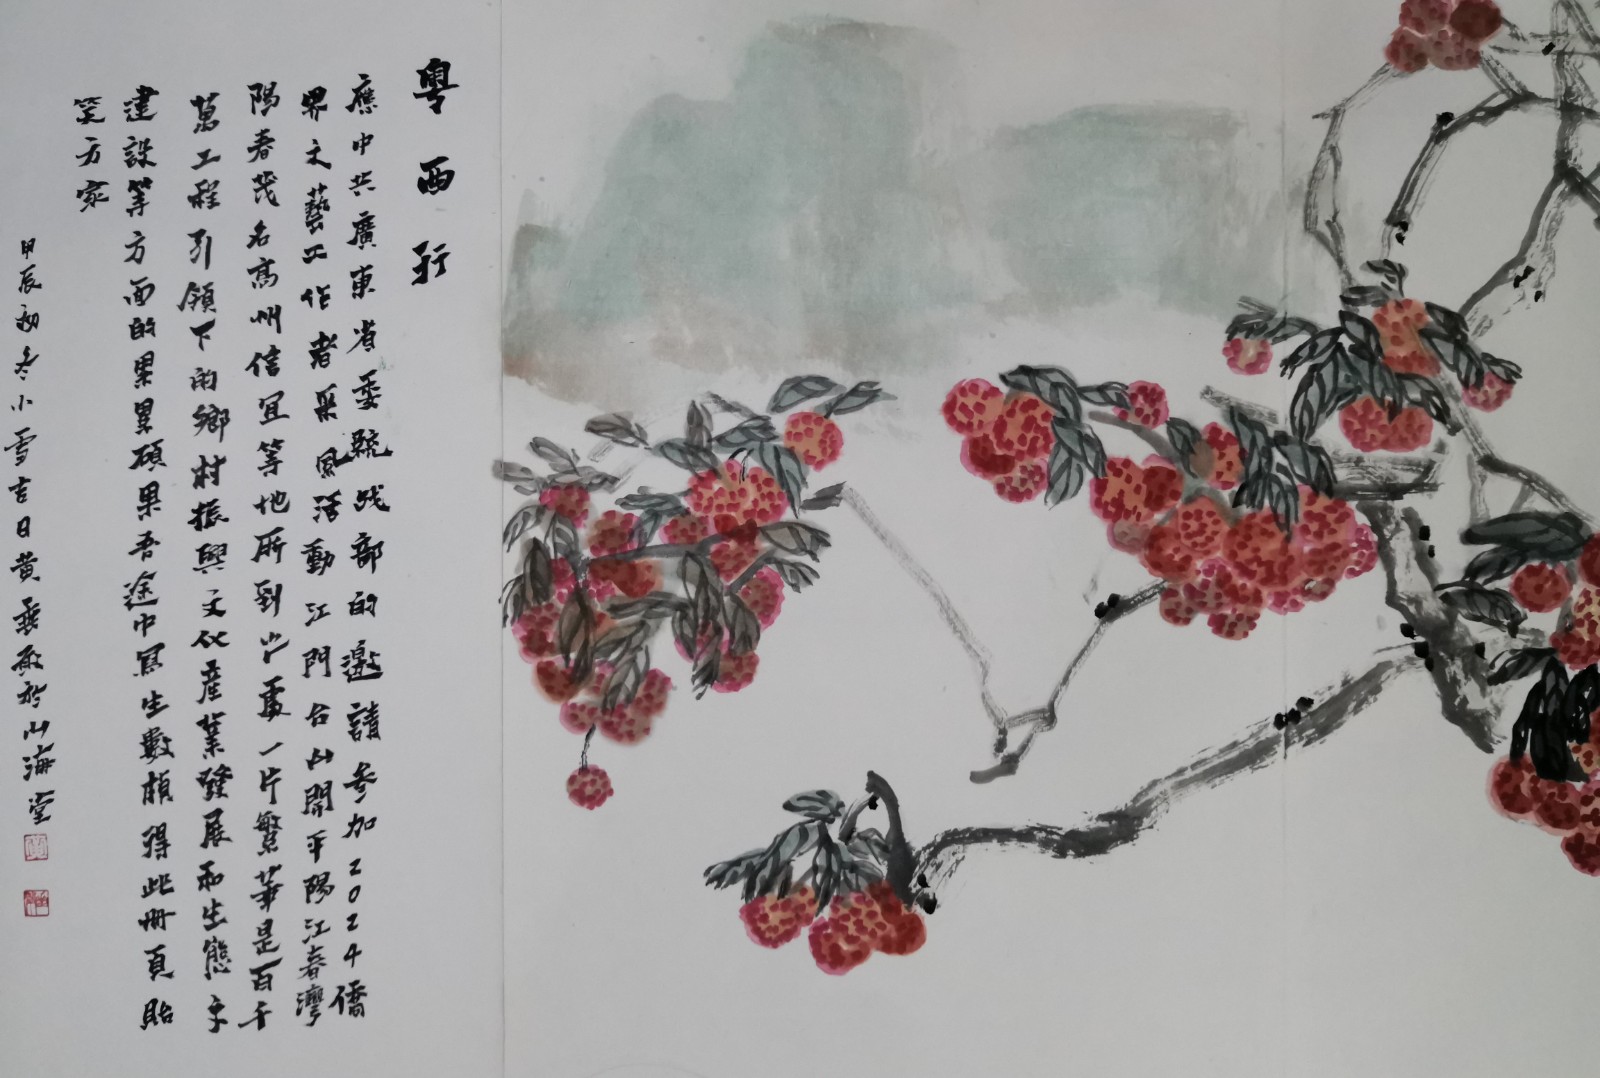 粤西行
應中共廣東省委統战部的邀請參加2024僑
界文藝工作者采風活動江門台山開平陽江春灣
陽春茂名高州信宜等地所到之處一片繁華是百千
萬工程引領下的鄉村振興文化產業發展和生態文
建設等方面的累累碩果吾途中寫生數楨得此册頁貽
笑方家
甲辰初冬小雪吉日黄 於山海堂